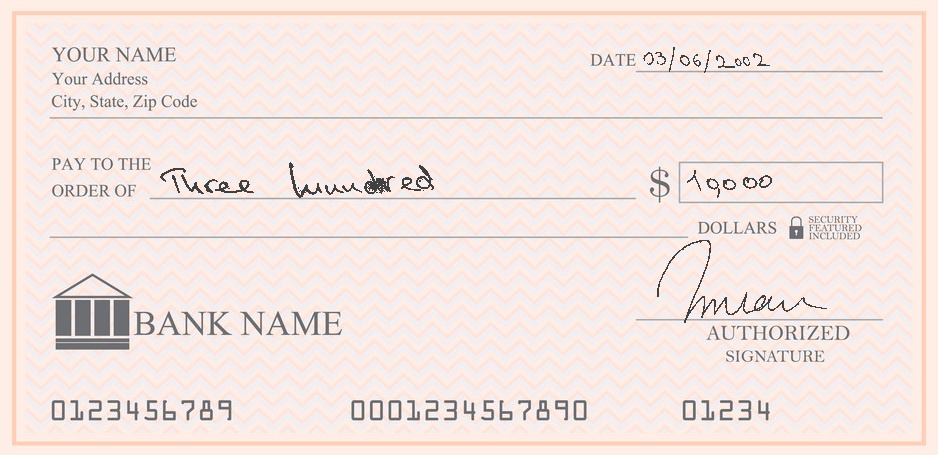 YOUR NAME
Your Address
City, State, Zip Code
DATE 03/06/2002
PAY TO THE
ORDER OF Three hundred
$ 10000
DOLLARS
SECURITY
FEATURED
INCLUDED
BANK NAME
AUTHORIZED
SIGNATURE
0123456789 0001234567890 01234